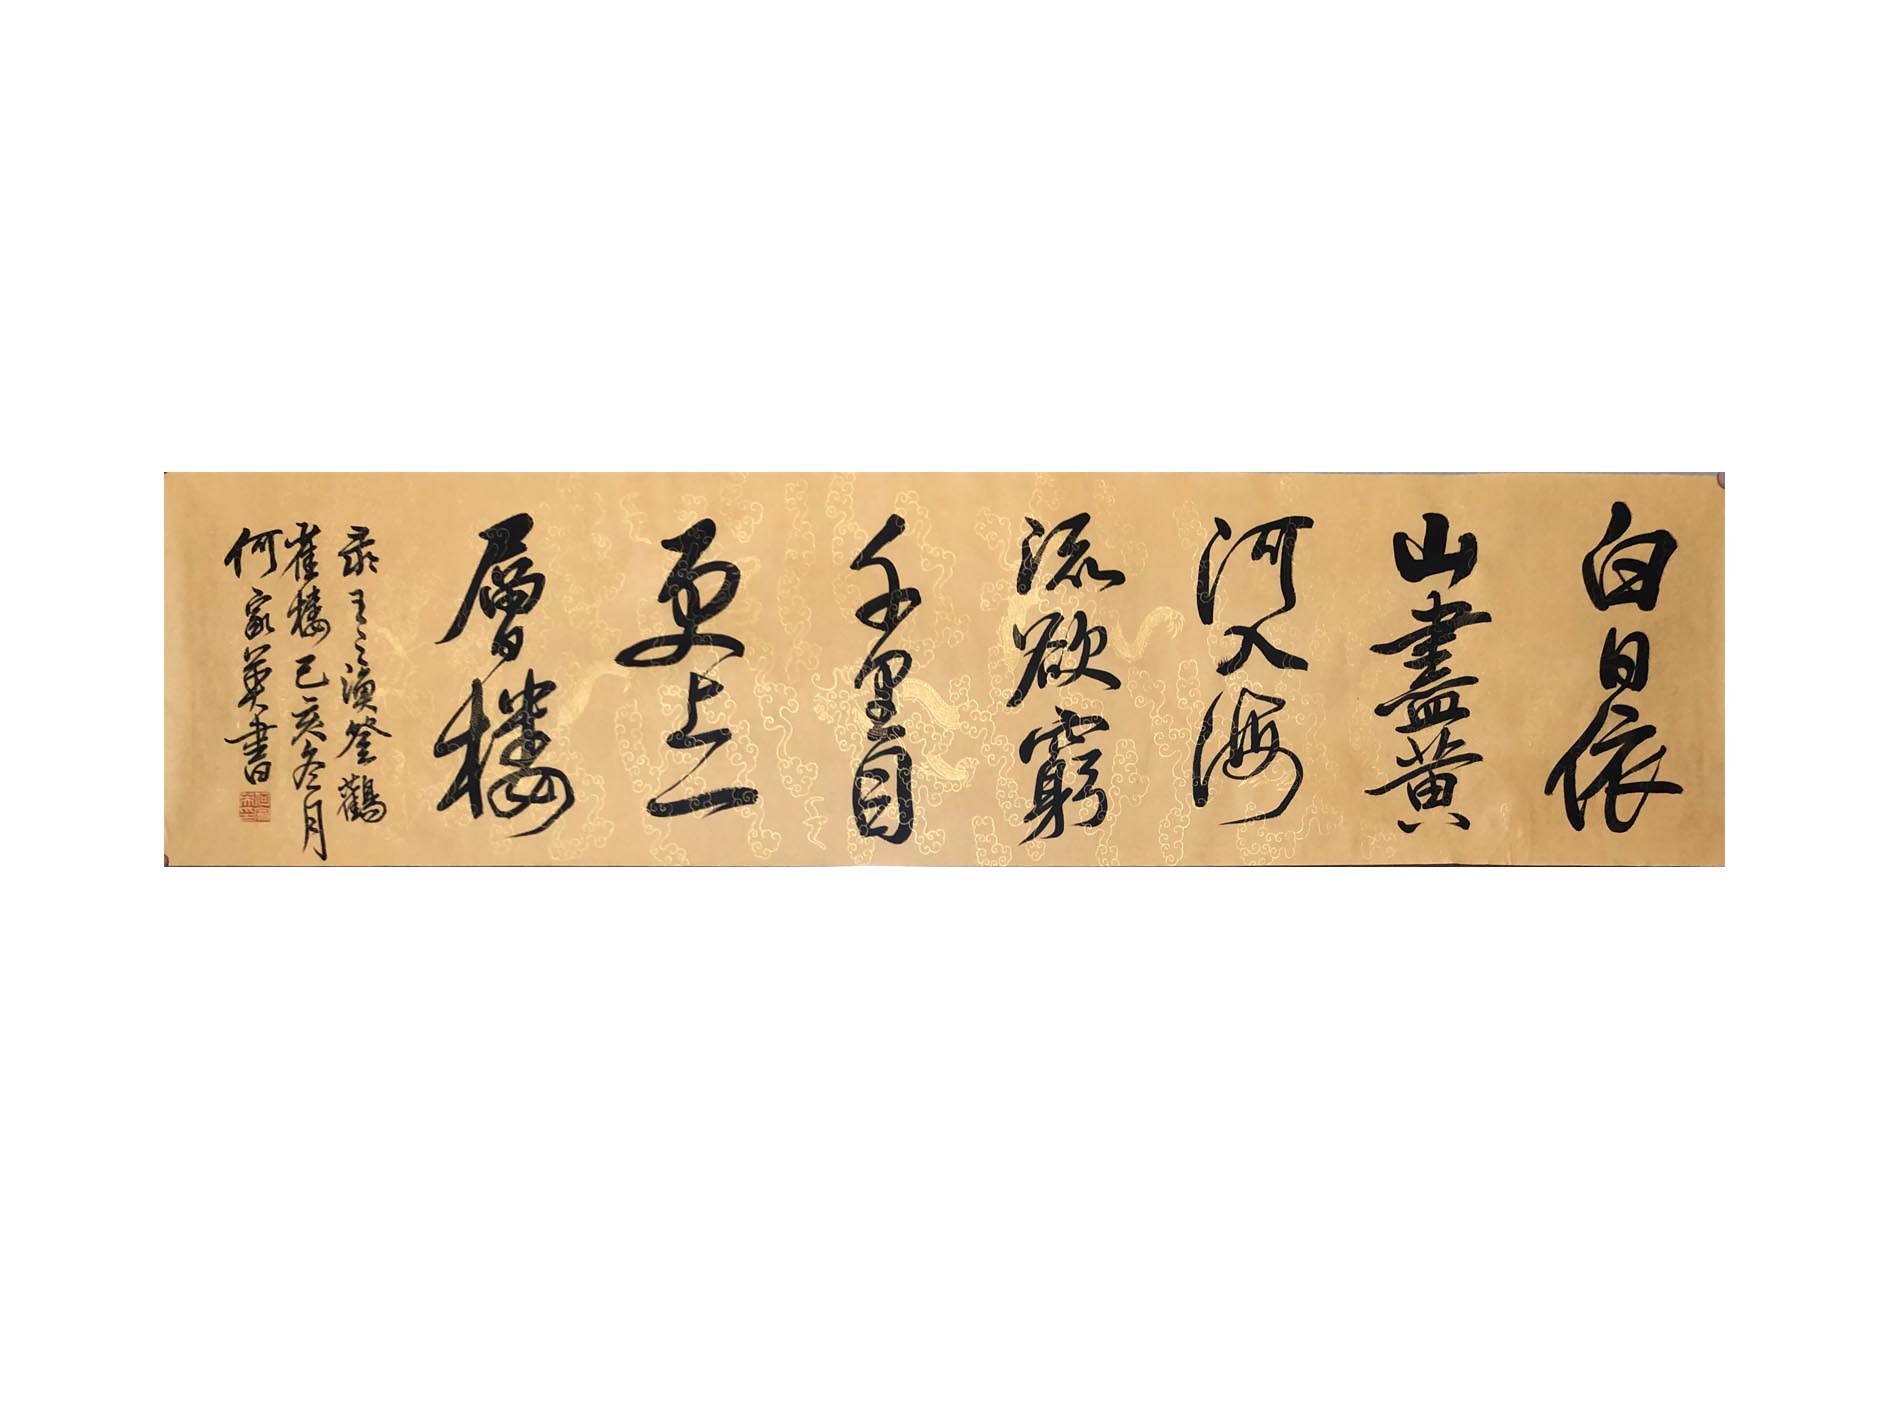 白日依
山盡黄
河入海
流欲窮
千里目
更上一
層樓
录王之渙登鸛
雀樓己亥冬月
何家英書